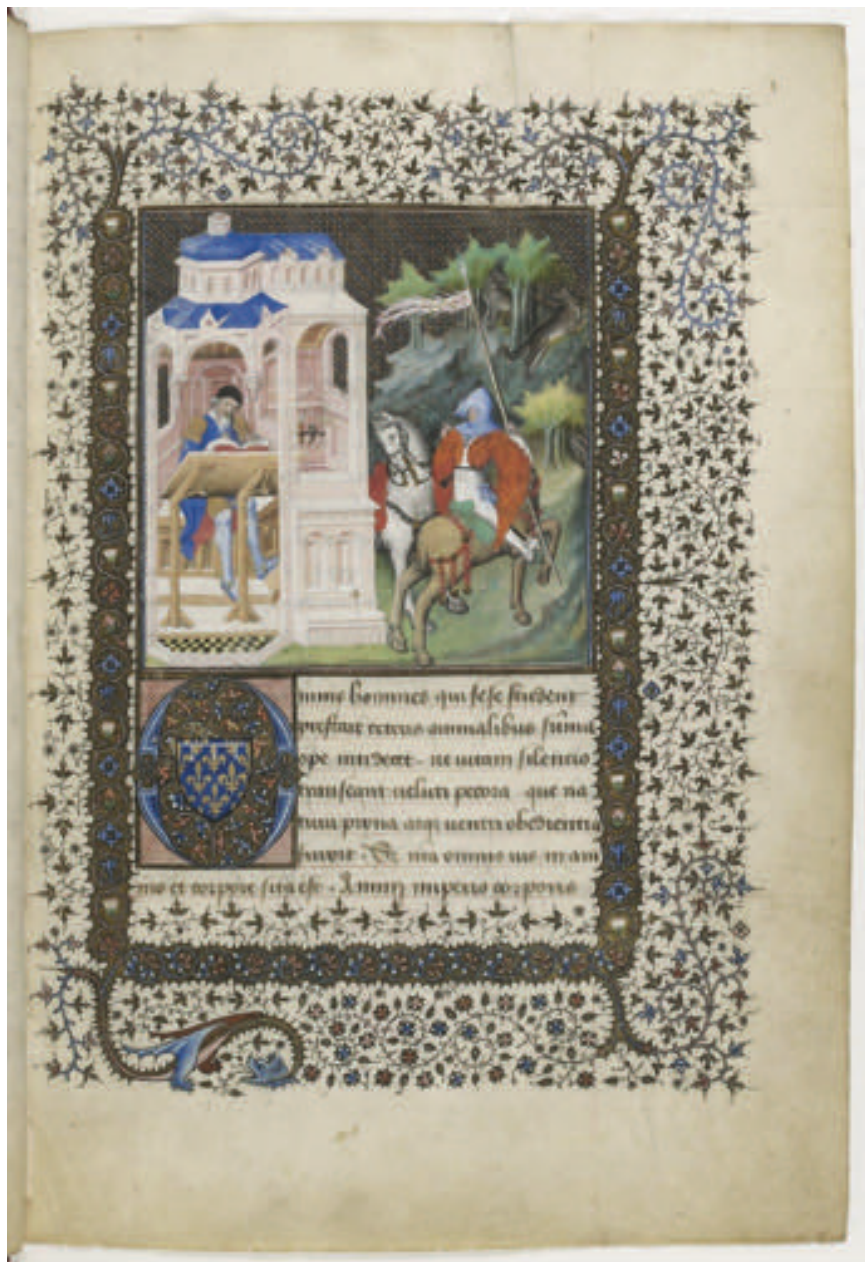 Omnis homines qui sese student
prestare ceteris animalibus suma
ope niti decet . ne uitam silentio
transeant ueluti pecora que na
tura prona atqz uentri obedientia
finxit . Sz nra omnis uis in ani
mo et corpore sita est . Animi imperio corporis